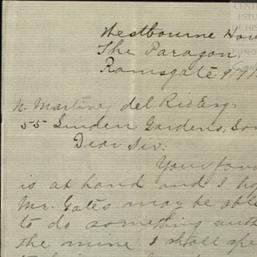 Westbourne Hou
The Paragon,
Ramsgate 9/9
N. Martinez del Rio Esq.
55 Linden Gardens, Lon
Dear Sir:
Your fav
is at hand and I ho
Mr. Gates may be able
to do something with
the mine I shall spe